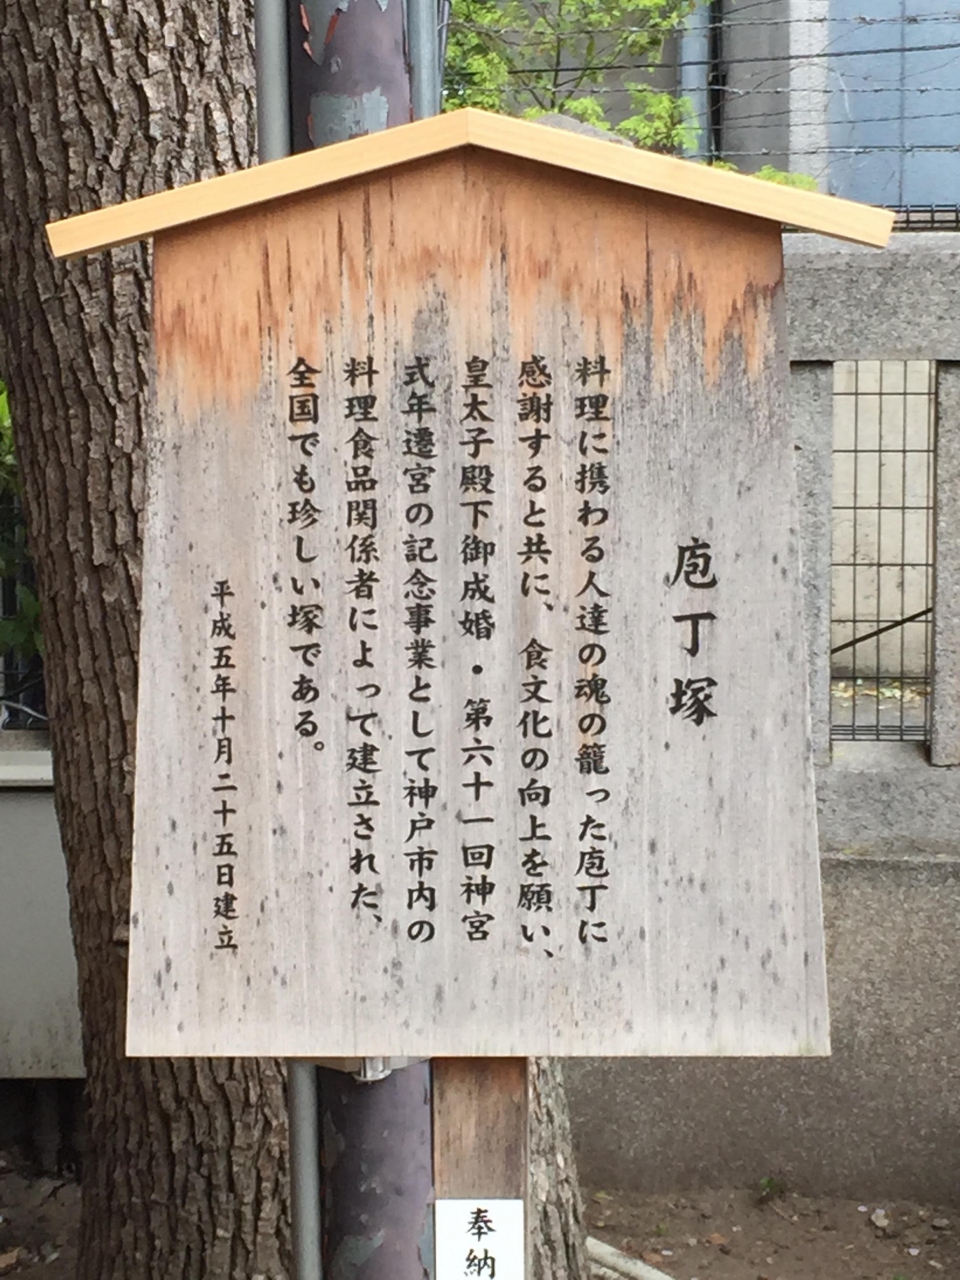 庖丁塚
料理に携わる人達の魂の籠った庖丁に
感謝すると共に、食文化の向上を願い、
皇太子殿下御成婚・第六十一回神宮
式年遷宮の記念事業として神戸市内の
料理食品関係者によって建立された、
全国でも珍しい塚である。
平成五年十月二十五日建立
奉納